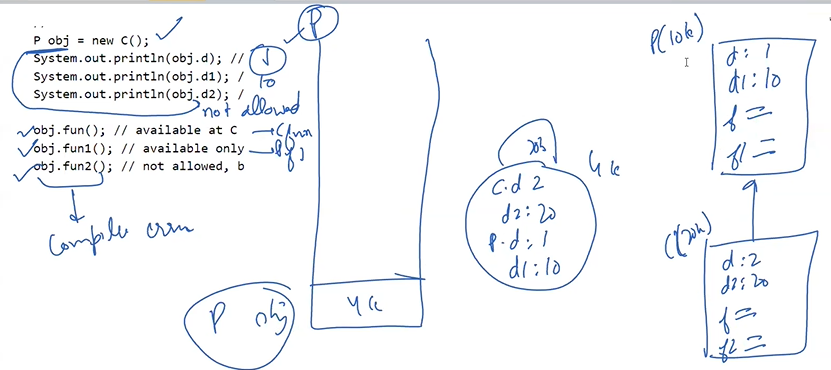 ..
P obj = new C();
System.out.println(obj.d); // 1
System.out.println(obj.d1); / 10
System.out.println(obj.d2); /
not allowed
obj.fun(); // available at C → C fun
obj.fun1(); // available only
obj.fun2(); // not allowed, b
Compile
P obj
P
4k
4k
C.d 2
d2:20
P.d:1
d1:10
P(10k)
d: 1
d1:10
f =
f1 =
C(20k)
d:2
d2:20
f =
f2 =